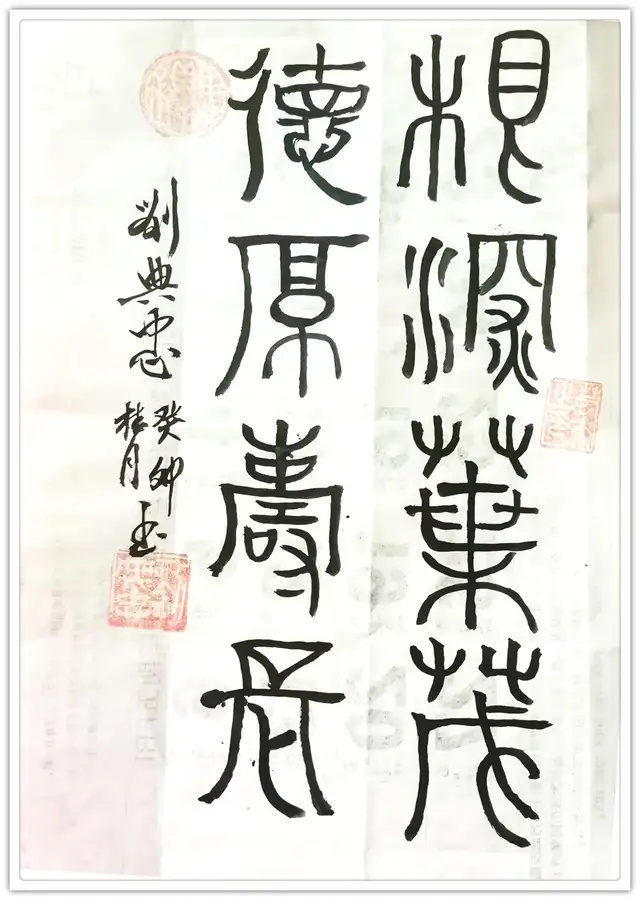 根深葉茂
德厚壽長
劉典忠
癸卯
桂月